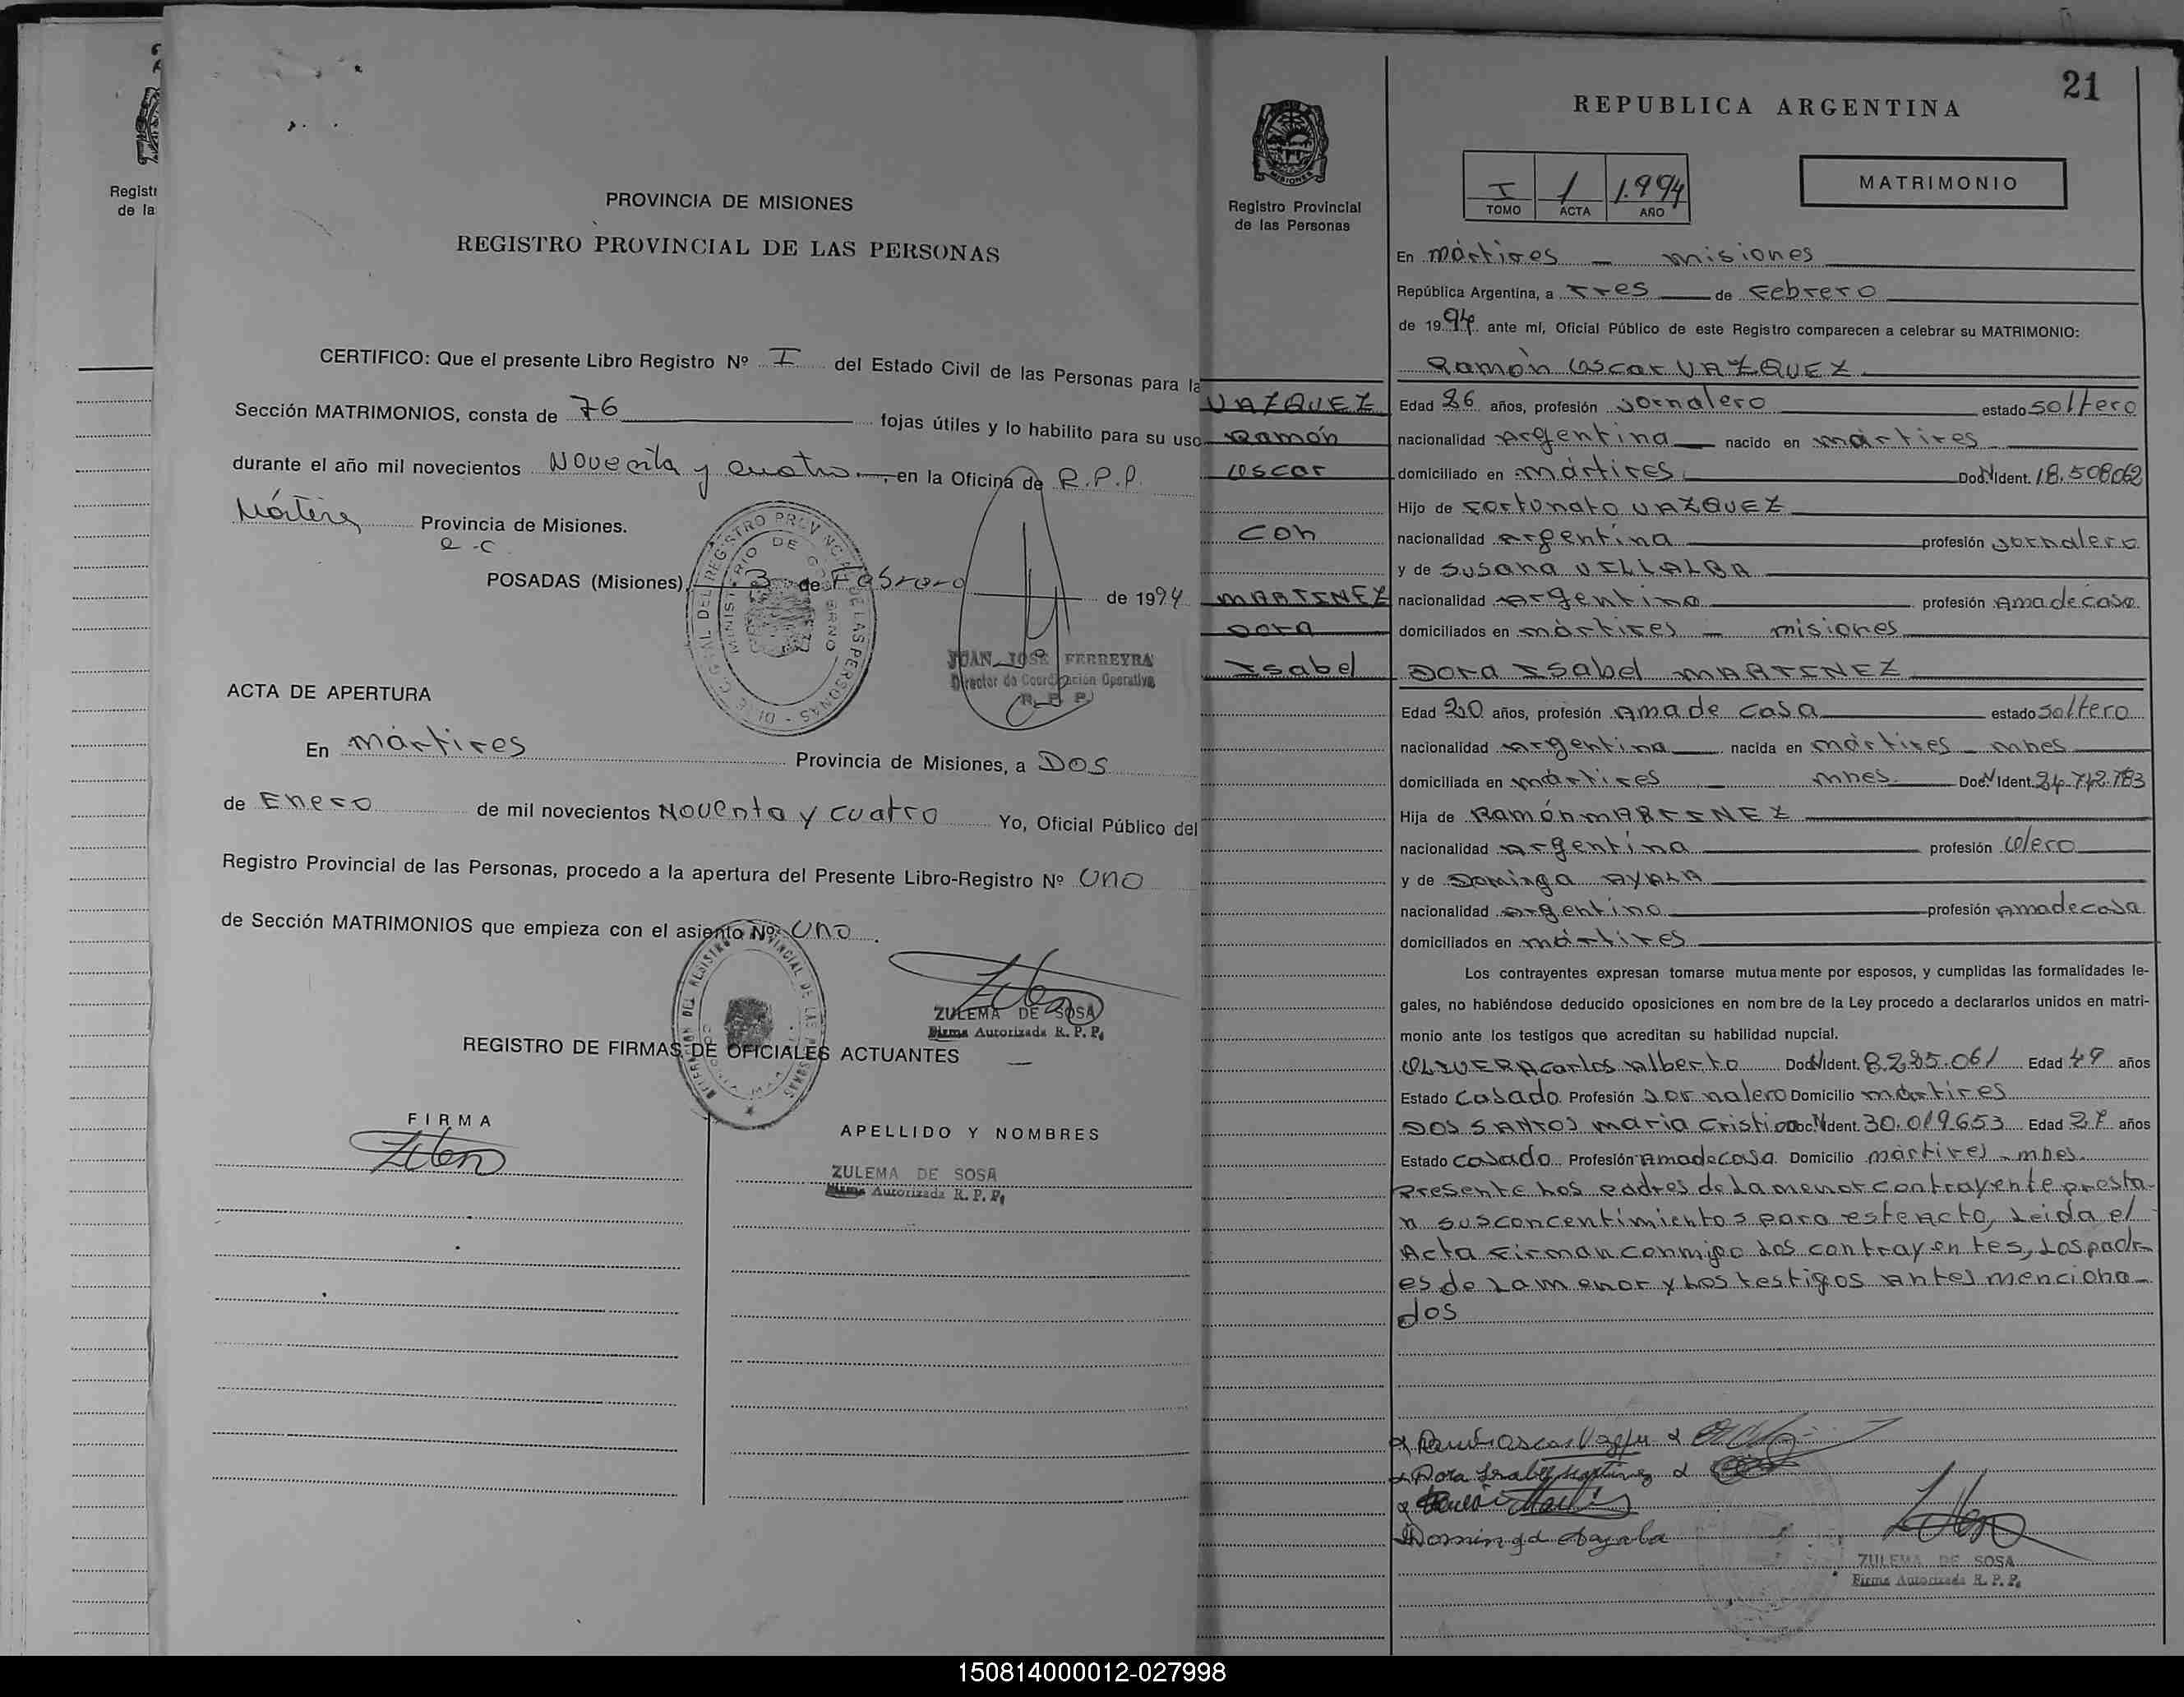 Registr
de la
PROVINCIA DE MISIONES
REGISTRO PROVINCIAL DE LAS PERSONAS
CERTIFICO: Que el presente Libro Registro Nº I del Estado Civil de las Personas para la
Sección MATRIMONIOS, consta de 76 fojas útiles y lo habilito para su uso
durante el año mil novecientos Novecnta y cuatro, en la Oficina de R.P.P.
Mártires Provincia de Misiones.
POSADAS (Misiones), 3 de Febrero de 1994
JUAN JOSE FERREYRA
Director de Coordinación Operativa
R. P. P.
ACTA DE APERTURA
En mártires Provincia de Misiones, a DOS
de Enero de mil novecientos Noventa y cuatro Yo, Oficial Público del
Registro Provincial de las Personas, procedo a la apertura del Presente Libro-Registro Nº Uno
de Sección MATRIMONIOS que empieza con el asiento Nº Uno.
ZULEMA DE SOSA
Firma Autorizada R. P. P.
REGISTRO DE FIRMAS DE OFICIALES ACTUANTES
FIRMA
APELLIDO Y NOMBRES
ZULEMA DE SOSA
Firma Autorizada R. P. P.
MISIONES
Registro Provincial
de las Personas
VAZQUEZ
Ramón
Oscar
con
MARTINEZ
Dora
Isabel
21
REPUBLICA ARGENTINA
I 1 1.994
TOMO ACTA AÑO
MATRIMONIO
En mártires - misiones
República Argentina, a Tres de Febrero
de 1994 ante mí, Oficial Público de este Registro comparecen a celebrar su MATRIMONIO:
Ramón Oscar VAZQUEZ
Edad 26 años, profesión Jornalero estado soltero
nacionalidad Argentina nacido en mártires
domiciliado en mártires Doc. N Ident. 18.508062
Hijo de Fortunato VAZQUEZ
nacionalidad Argentina profesión Jornalero
y de Susana VILLALBA
nacionalidad Argentina profesión Ama de casa
domiciliados en mártires - misiones
Dora Isabel MARTINEZ
Edad 20 años, profesión Ama de casa estado soltero
nacionalidad Argentina nacida en mártires - mnes
domiciliada en mártires mnes. Doc. N Ident. 24.742.783
Hija de Ramón MARTINEZ
nacionalidad Argentina profesión Olero
y de Dominga AYALA
nacionalidad Argentina profesión Ama de casa
domiciliados en mártires
Los contrayentes expresan tomarse mutuamente por esposos, y cumplidas las formalidades le-
gales, no habiéndose deducido oposiciones en nombre de la Ley procedo a declararlos unidos en matri-
monio ante los testigos que acreditan su habilidad nupcial.
OLIVERA Carlos Alberto Doc. N Ident. 8.285.061 Edad 47 años
Estado Casado Profesión Jornalero Domicilio mártires
DOS SANTOS maria Cristina Doc. N Ident. 30.019653 Edad 27 años
Estado Casado Profesión Ama de Casa Domicilio mártires - mnes.
Presente Los Padres de La menor contrayente presta-
n sus concentimientos para este Acto, Leída el
Acta Firman conmigo Los contrayentes, Los padr-
es de La menor y Los testigos Antes menciona-
dos
Dora Isabel Martinez
Dominga Ayala
ZULEMA DE SOSA
Firma Autorizada R. P. P.
150814000012-027998